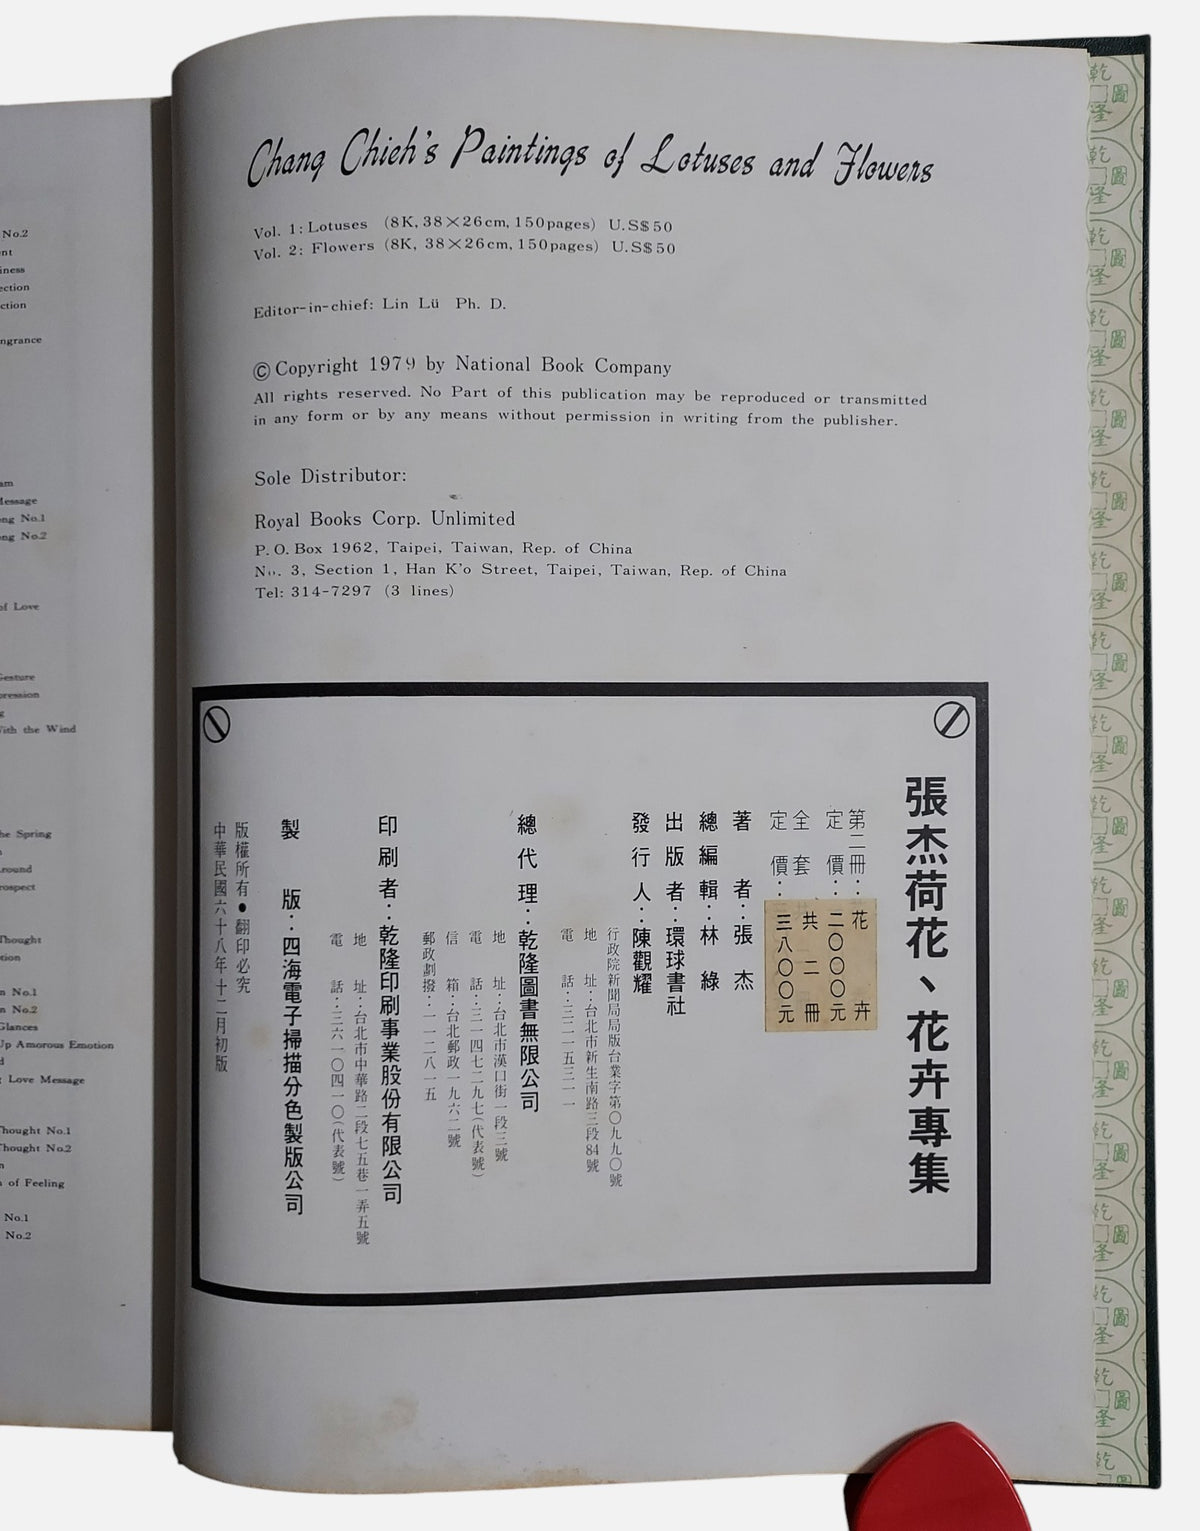 No.2
ent
iness
ection
ction
ngrance
am
Message
ng No.1
ng No.2
of Love
Gesture
pression
g
With the Wind
he Spring
round
ospect
Thought
tion
n No.1
n No.2
Glances
Up Amorous Emotion
d
Love Message
Thought No.1
Thought No.2
n
n of Feeling
No.1
No.2
Chang Chieh's Paintings of Lotuses and Flowers
Vol. 1: Lotuses (8K, 38×26cm, 150pages) U.S$50
Vol. 2: Flowers (8K, 38×26cm, 150pages) U.S$50
Editor-in-chief: Lin Lü Ph. D.
© Copyright 1979 by National Book Company
All rights reserved. No Part of this publication may be reproduced or transmitted
in any form or by any means without permission in writing from the publisher.
Sole Distributor:
Royal Books Corp. Unlimited
P. O. Box 1962, Taipei, Taiwan, Rep. of China
No. 3, Section 1, Han K'o Street, Taipei, Taiwan, Rep. of China
Tel: 314-7297 (3 lines)
張杰荷花、花卉專集
第二冊：花卉
定價：二〇〇〇元
全套共二冊
定價：三八〇〇元
著者：張杰
總編輯：林綠
出版者：環球書社
發行人：陳觀耀
行政院新聞局局版台業字第〇九九〇號
地址：台北市新生南路三段84號
電話：三二一五三一一
總代理：乾隆圖書無限公司
地址：台北市漢口街一段三號
電話：三一四七二九七（代表號）
信箱：台北郵政一九六二號
郵政劃撥：一一二八一五
印刷者：乾隆印刷事業股份有限公司
地址：台北市中華路二段七五巷一弄五號
電話：三六一〇四一〇（代表號）
製版：四海電子掃描分色製版公司
版權所有●翻印必究
中華民國六十八年十二月初版